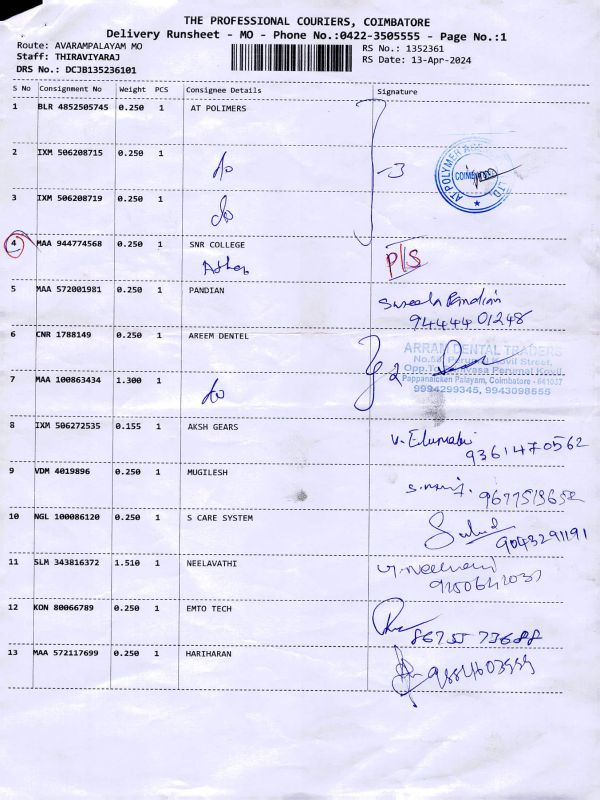 THE PROFESSIONAL COURIERS, COIMBATORE
Delivery Runsheet - MO - Phone No.:0422-3505555 - Page No.:1
Route: AVARAMPALAYAM MO
RS No.: 1352361
Staff: THIRAVIYARAJ
RS Date: 13-Apr-2024
DRS No.: DCJB135236101
S No Consignment No Weight PCS Consignee Details Signature
1 BLR 4852505745 0.250 1 AT POLIMERS
2 IXM 506208715 0.250 1
do
-3
3 IXM 506208719 0.250 1
do
4 MAA 944774568 0.250 1 SNR COLLEGE
P/S
5 MAA 572001981 0.250 1 PANDIAN
Pandian
9444401248
6 CNR 1788149 0.250 1 AREEM DENTEL
ARRAM DENTAL TRADERS
2
7 MAA 100863434 1.300 1
do
Pappanaicken Palayam, Coimbatore - 641037
9994299345, 9943098555
8 IXM 506272535 0.155 1 AKSH GEARS
9361470562
9 VDM 4019896 0.250 1 MUGILESH
10 NGL 100086120 0.250 1 S CARE SYSTEM
9043291191
11 SLM 343816372 1.510 1 NEELAVATHI
12 KON 80066789 0.250 1 EMTO TECH
13 MAA 572117699 0.250 1 HARIHARAN